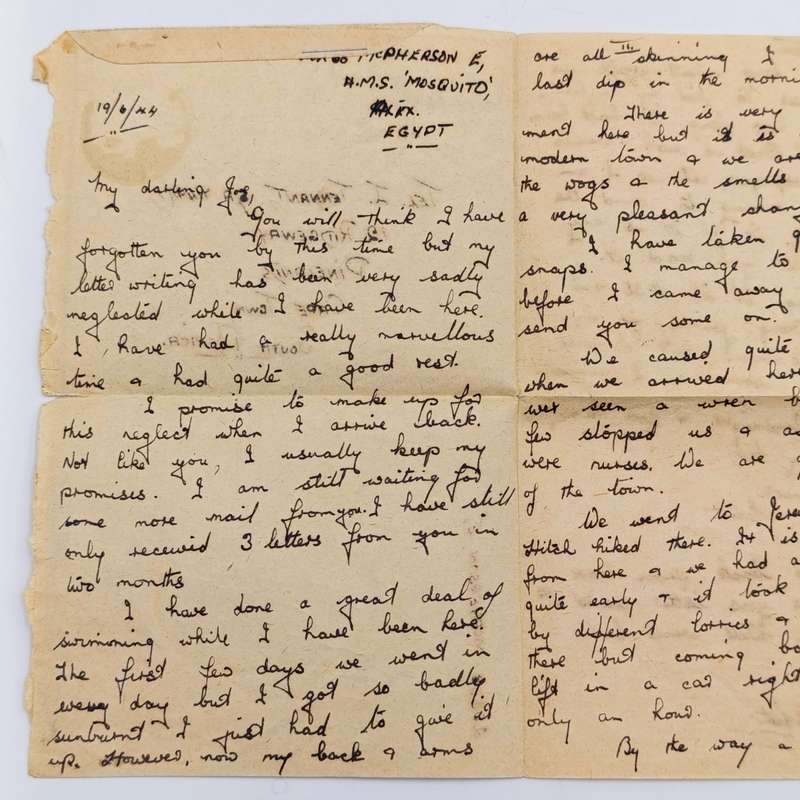 McPHERSON E,
H.M.S. 'MOSQUITO',
ALEX.
EGYPT
19/6/44
My darling Joe,
You will think I have
forgotten you by this time but my
letter writing has been very sadly
neglected while I have been here.
I have had a really marvellous
time & had quite a good rest.
I promise to make up for
this neglect when I arrive back.
Not like you, I usually keep my
promises. I am still waiting for
some more mail from you. I have still
only received 3 letters from you in
two months
I have done a great deal of
swimming while I have been here.
The first few days we went in
every day but I got so badly
sunburnt I just had to give it
up. However, now my back & arms
II.
are all skinning I
last dip in the morni
There is very
ment here but it is
modern town & we are
the wogs & the smells
a very pleasant chang
I have taken q
snaps. I manage to
before I came away
send you some on.
We caused quite
when we arrived here
ever seen a wren b
few stopped us & as
were nurses. We are
of the town.
We went to Jeru
Hitch hiked there. It is
from here & we had a
quite early & it took
by different lorries &
there but coming ba
lift in a car right
only an hour.
By the way a
TENNANT